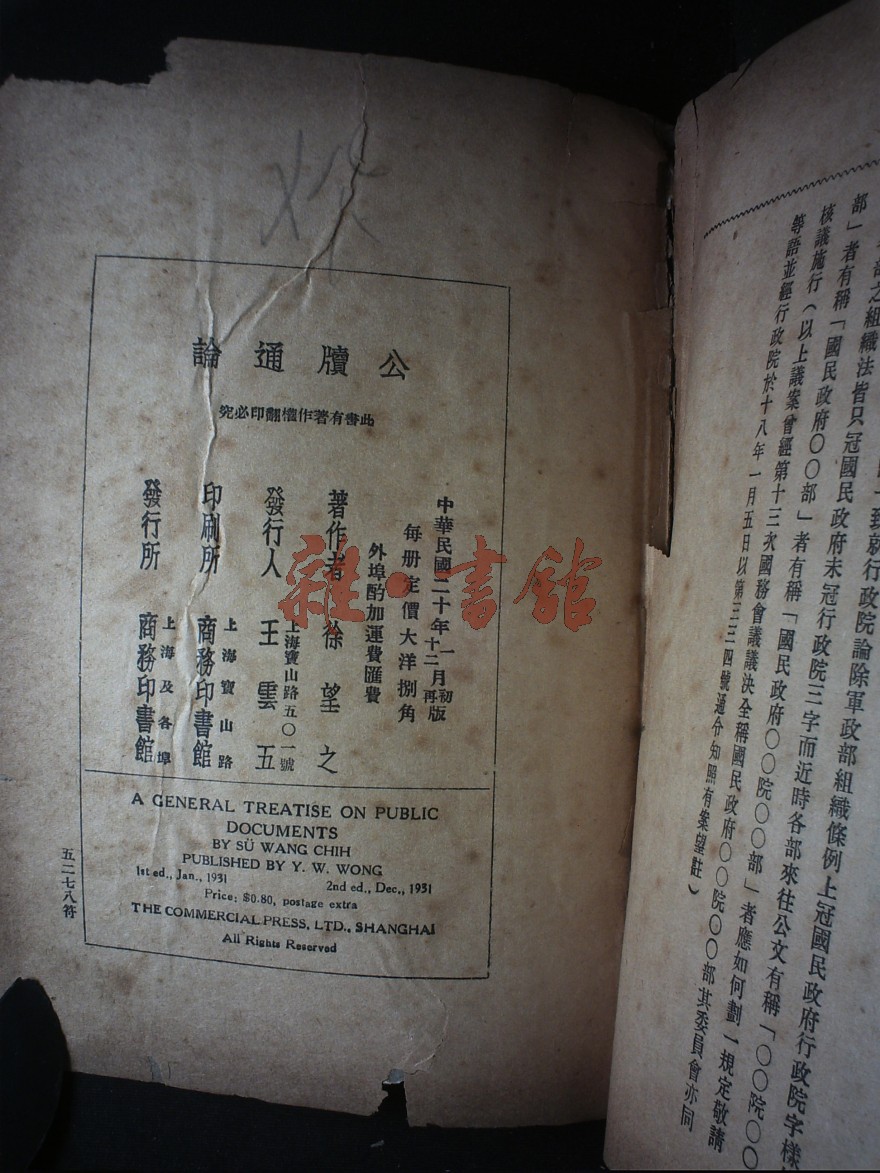 公牘通論
此書有著作權翻印必究
中華民國二十年一月初版
十二月再版
每册定價大洋捌角
外埠酌加運費匯費
著作者 徐望之
發行人 王雲五
上海寶山路五〇一號
印刷所 商務印書館
上海寶山路
發行所 商務印書館
上海及各埠
A GENERAL TREATISE ON PUBLIC
DOCUMENTS
BY SÜ WANG CHIH
PUBLISHED BY Y. W. WONG
1st ed., Jan., 1931 2nd ed., Dec., 1931
Price: $0.80, postage extra
THE COMMERCIAL PRESS, LTD., SHANGHAI
All Rights Reserved
五二七八符
雜·書館
一致就行政院論除軍政部組織條例上冠國民政府行政院字樣
部之組織法皆只冠國民政府未冠行政院三字而近時各部來往公文有稱「〇〇院〇〇
部」者有稱「國民政府〇〇部」者有稱「國民政府〇〇院〇〇部」者應如何劃一規定敬請
核議施行(以上議案曾經第十三次國務會議議決全稱國民政府〇〇院〇〇部其委員會亦同
等語並經行政院於十八年一月五日以第三三四號通令知照有案望註)